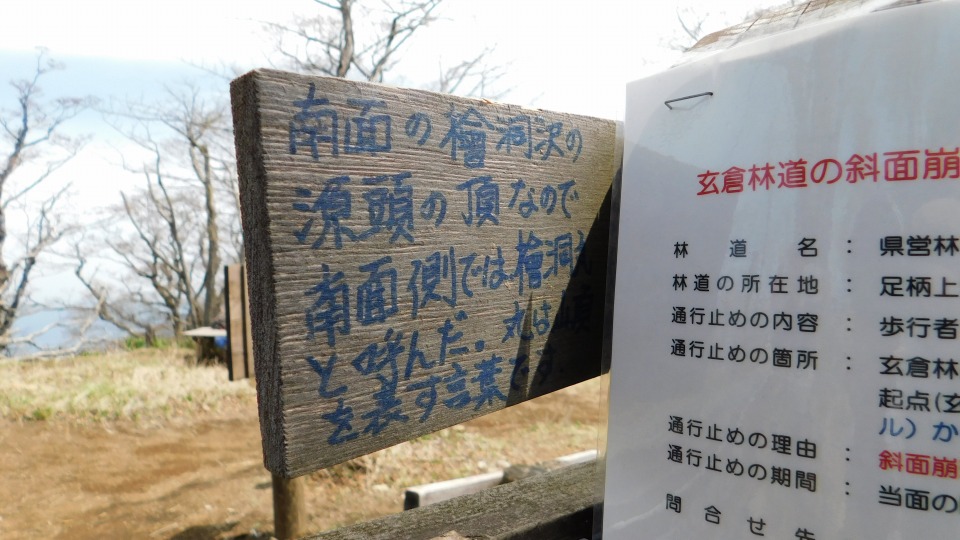 南面の檜洞沢の
源頭の頂なので
南面側では檜洞丸
と呼んだ。丸は山頂
を表す言葉です.
玄倉林道の斜面崩
林道名：県営林
林道の所在地：足柄上
通行止めの内容：歩行者
通行止めの箇所：玄倉林
起点(玄
ル）か
通行止めの理由：斜面崩
通行止めの期間：当面の
問合せ先